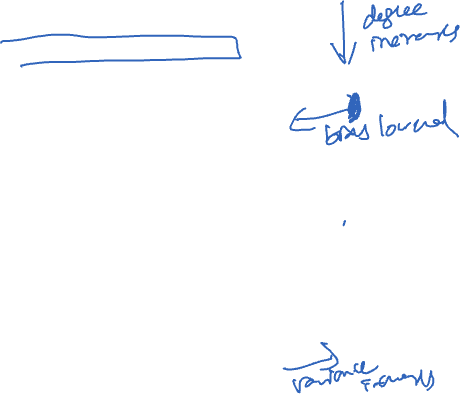 degree
increases
bias lowered
variance
increases